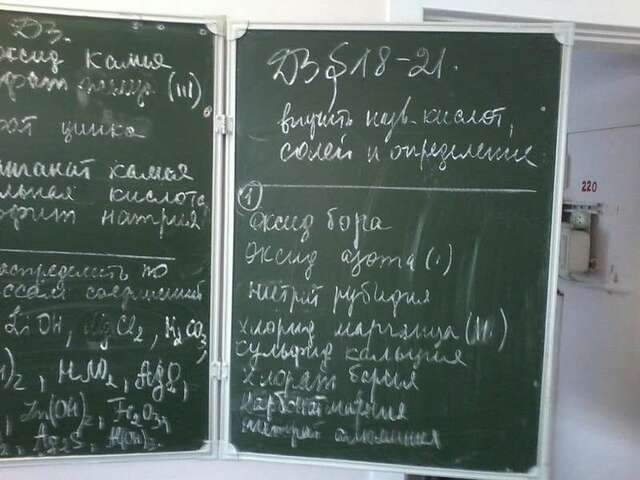 ДЗ.
оксид калия
(III)
рат цинка
ганат калия
льная кислота
фит натрия
аспределить по
ссам соединений
LiOH, MgCl2, H2CO3,
)2, HNO2, AgI,
Zn(OH)2, Fe2O3,
Ag2S,
ДЗ § 18-21.
выучить назв. кислот,
солей и определение
1
Оксид бора
Оксид азота (I)
нитрит рубидия
хлорид марганца (III)
сульфид кальция
хлорат бария
карбонат магния
нитрат алюминия
220